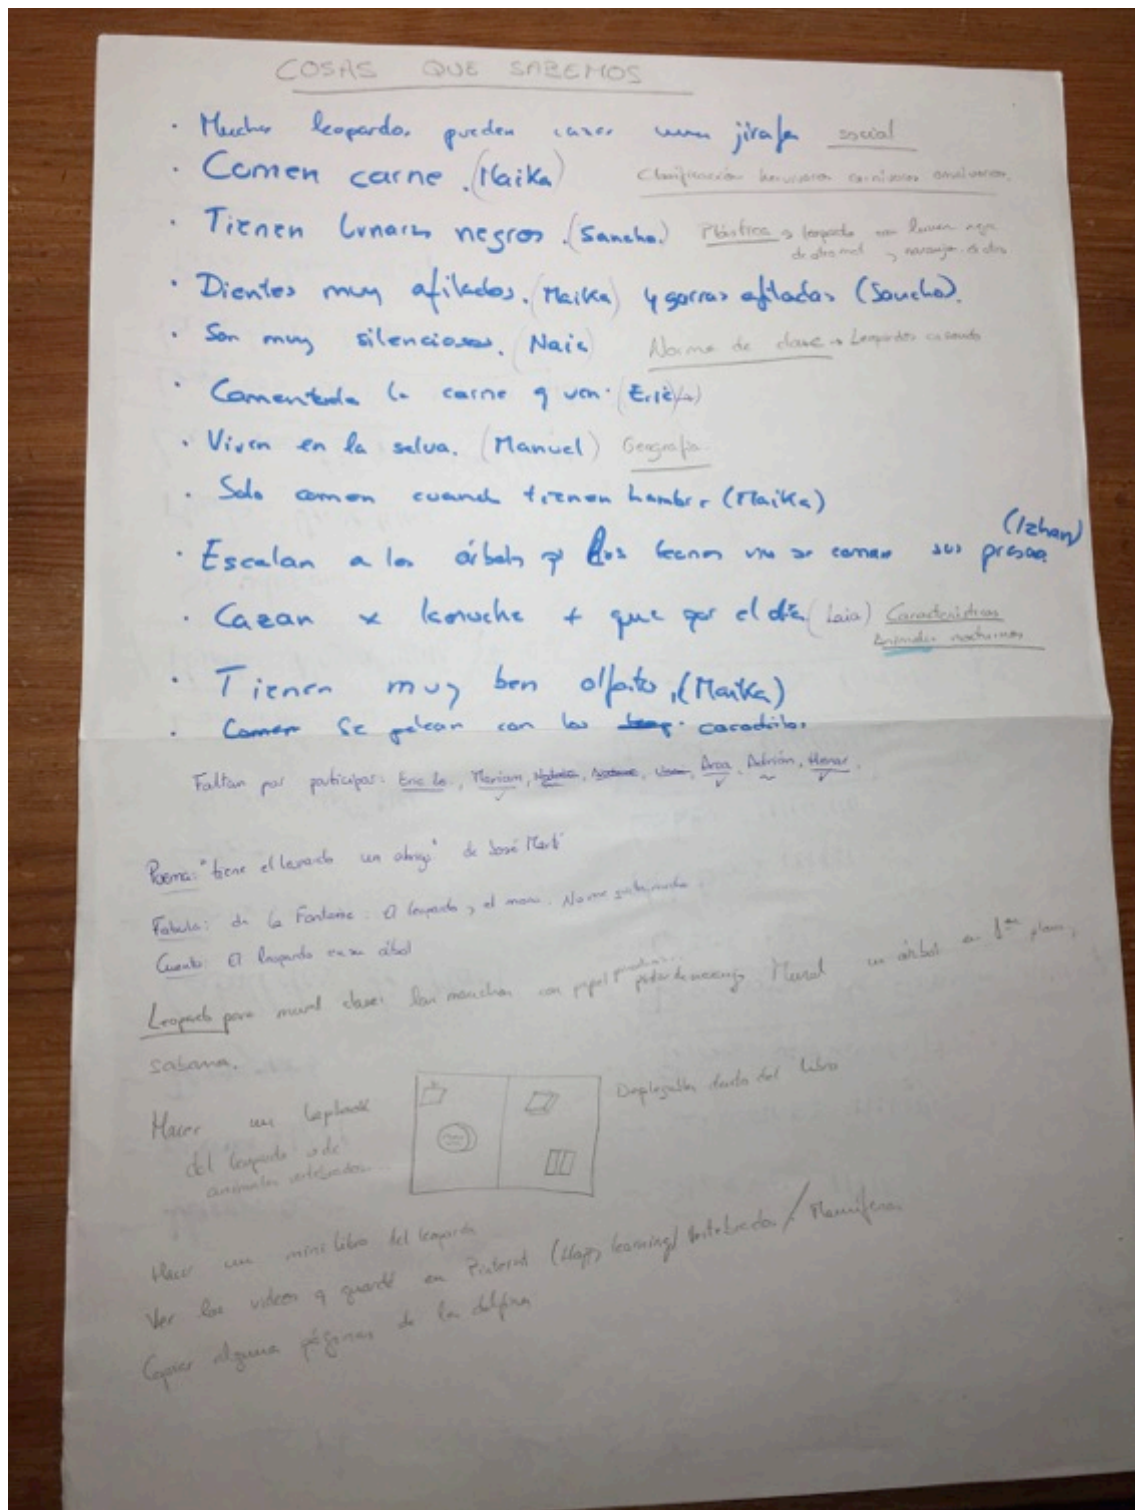 COSAS QUE SABEMOS
· Muchos leopardos pueden cazar una jirafa social
· Comen carne. (Maika) Clasificación carnívoros omnívoros.
· Tienen lunares negros. (Sancho) Plástica → leopardo con lunares
de otra y naranja
· Dientes muy afilados. (Maika) y garras afiladas (Sancho).
· Son muy silenciosos. (Naia) Norma de clase → Leopardos cazando
· la carne q ven. (Eric)
· Viven en la selva. (Manuel) Geografía
· Solo comen cuando tienen hambre (Maika)
(Izhan)
· Escalan a los árboles y los leones no se comen sus presas
· Cazan x la noche + que por el día (Laia) Características
Animales nocturnos
· Tienen muy ben olfato. (Maika)
· Comen Se pelean con los cocodrilos.
Faltan por participar: Eric Lo, Mariam, Aroa, Adrián, Henar.
Poema: "tiene el leopardo un abrigo" de José Martí
Fábula: de La Fontaine: El leopardo y el mono. No me gusta mucho
Cuento: El leopardo en su árbol
Leopardo para mural clase: las manchas con papel Mural un árbol en 1er plano,
sabana.
Hacer un lapbook Desplegables dentro del libro
del "leopardo" o de
animales vertebrados...
Hacer un mini libro del leopardo
Ver los videos q guardé en Pinterest (Happy learning) Vertebrados / Mamíferos
Copiar alguna páginas de los delfines